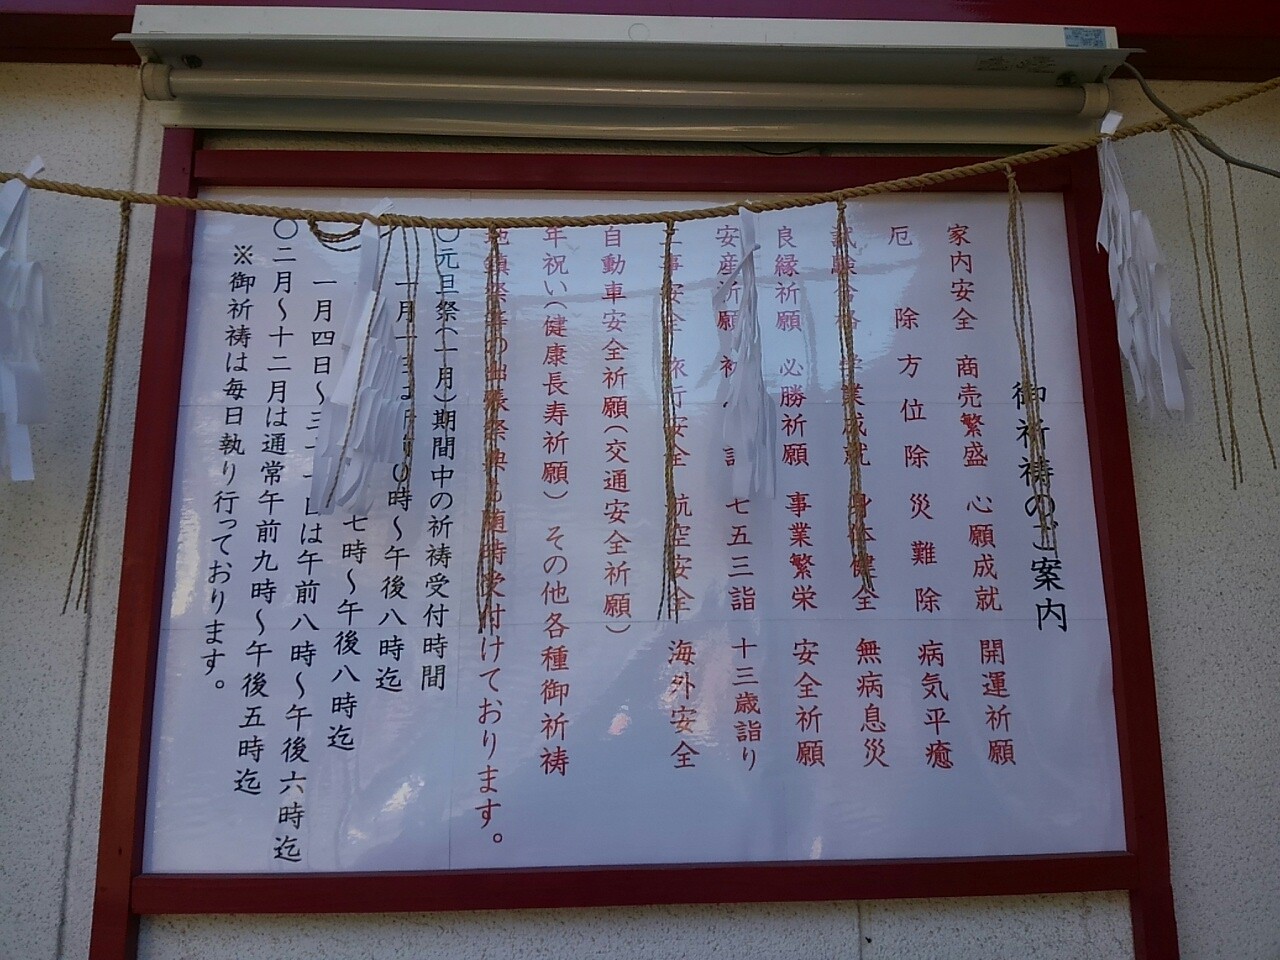 御祈祷のご案内
家内安全 商売繁盛 心願成就 開運祈願
厄除 方位除 災難除 病気平癒
試験合格 学業成就 身体健全 無病息災
良縁祈願 必勝祈願 事業繁栄 安全祈願
安産祈願 七五三詣 十三歳詣り
工事安全 旅行安全 航空安全 海外安全
自動車安全祈願(交通安全祈願)
年祝い(健康長寿祈願) その他各種御祈祷
地鎮祭等の出張祭典も随時受付けております。
〇元旦祭(一月)期間中の祈祷受付時間
時～午後八時迄
七時～午後八時迄
一月四日～三十一日は午前八時～午後六時迄
〇二月～十二月は通常午前九時～午後五時迄
※御祈祷は毎日執り行っております。